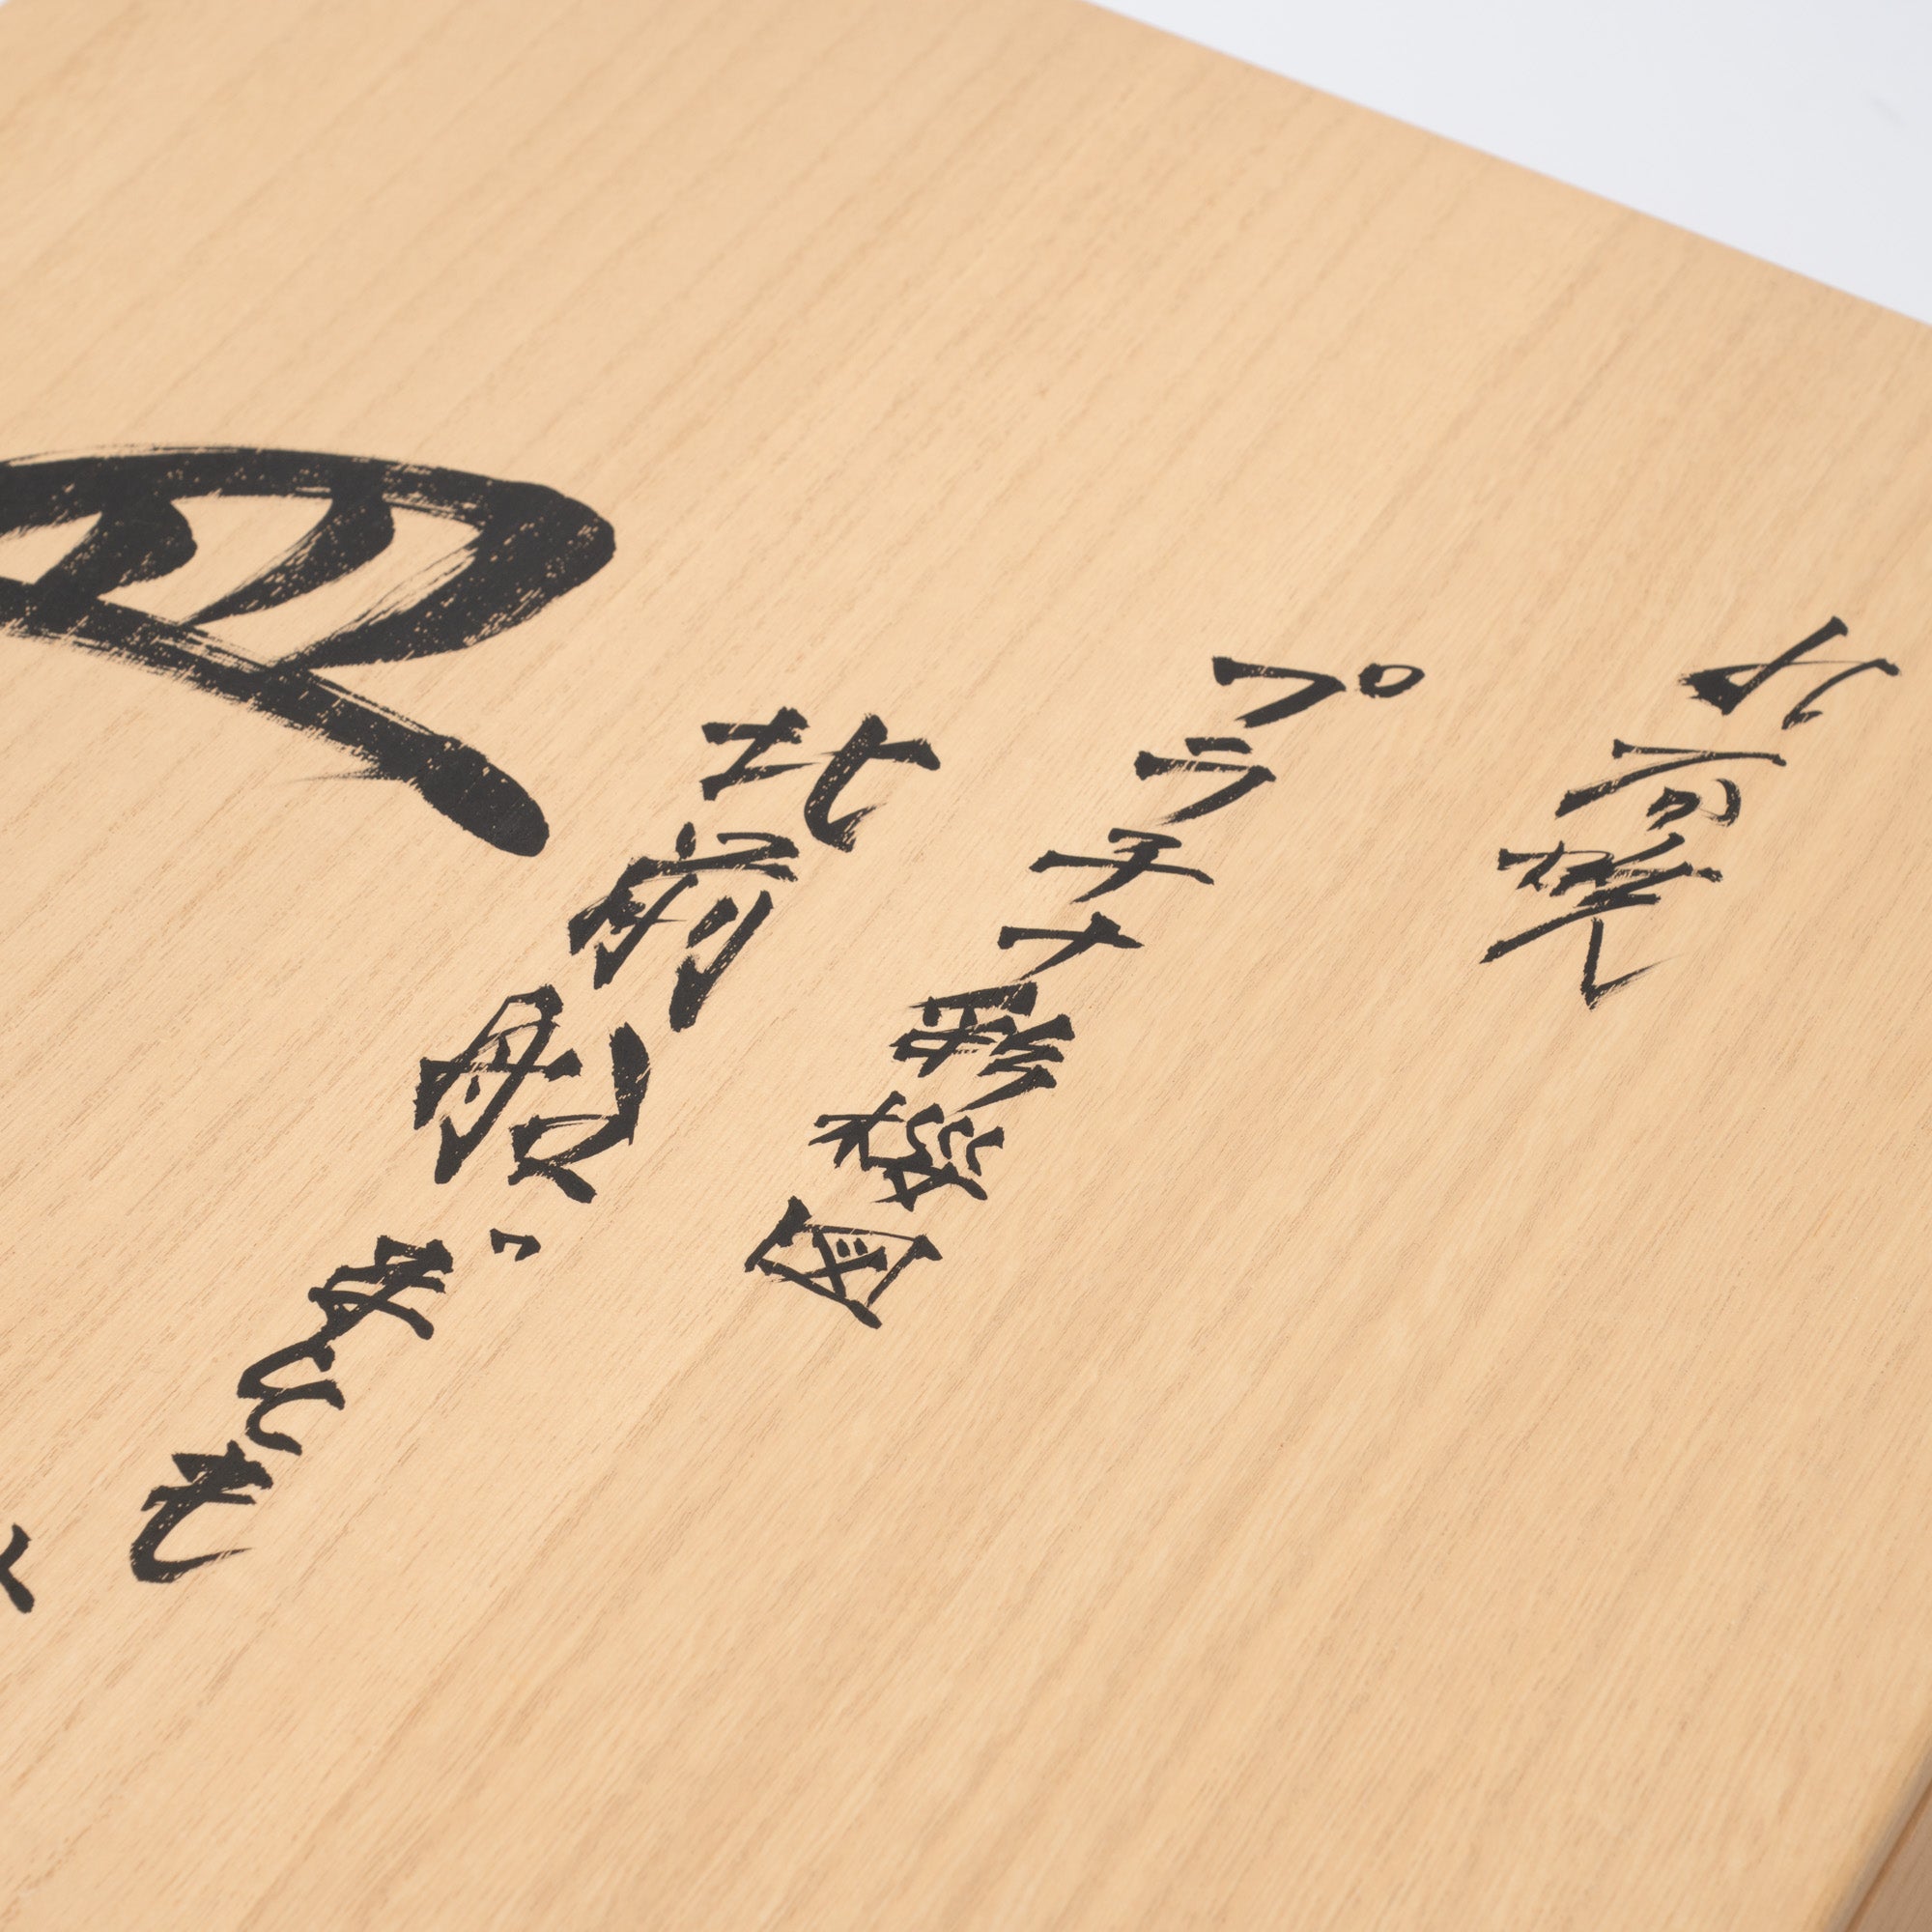 九谷焼
プラチナ彩桜図
北前船「まとも
皿